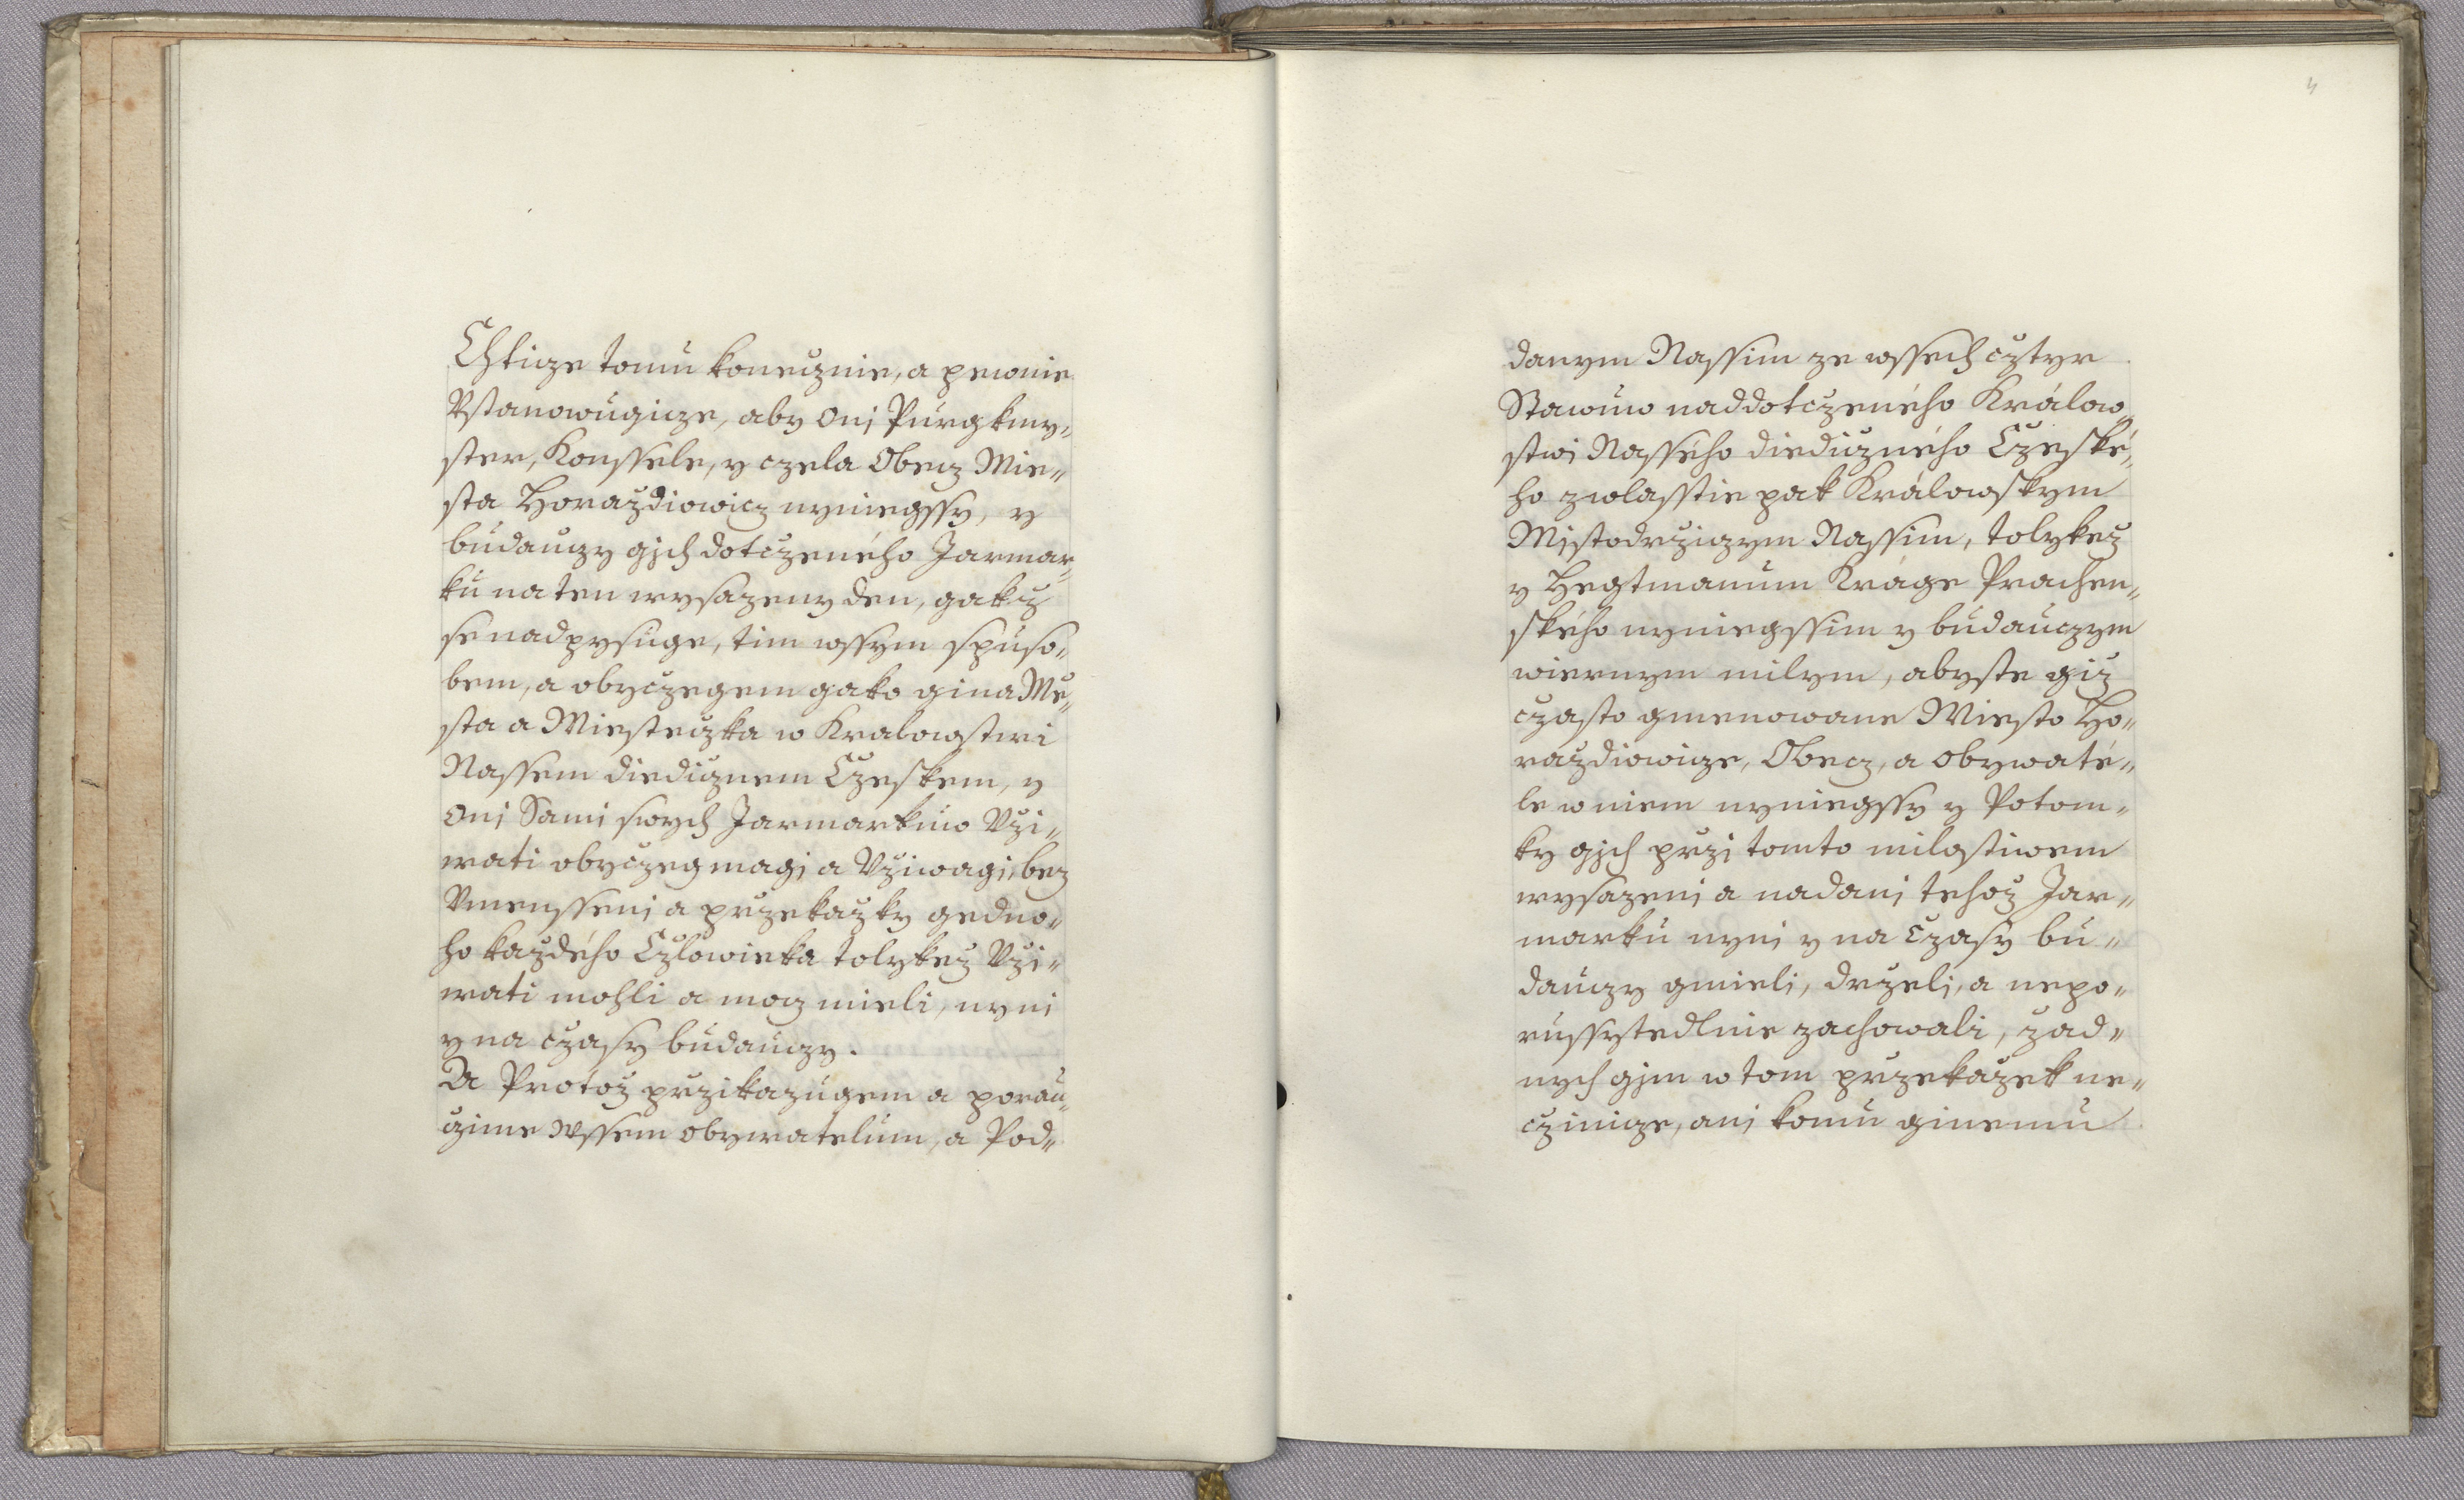 Chticze tomu konecznie, a pewnie
Vstanowugicze, aby oni Purgkmy„
ster, Konssele, y czela Obecz Mie„
sta Horazdiowicz nyniegssy, y
budauczy gjch dotczeného Jarmar„
ku na ten wysazeny den, gakz
se nadpysuge, tim wssym spuso„
bem, a obyczegem gako gina Mě„
sta a Miesteczka w Kralowstwi
Nassem diedicznem Czeskem, y
oni Sami swych Jarmarkuw Vzi„
wati obyczeg magi a Vziwagi, bez
Vmensseni a przekazky gedno„
ho kazdého Czlowieka tolykez Vzi„
wati mohli a mocz mieli, nyni
y na czasy budauczy.
A Protoz przikazugem a porau„
czime Wssem obywatelum, a Pod„
4
danym Nassim ze wssech cztyr
Stawuw naddotczeného Králow„
stwi Nassého diediczného Czeské„
ho zwlasstie pak Králowskym
Mistodrziczym Nassim, tolykez
y Hegtmanum Kráge Prachen„
ského nyniegssim y budauczym
wiernym milym, abyste giz
czasto gmenowane Miesto Ho„
razdiowicze, Obecz, a obywaté„
le w niem nyniegssy y Potom„
ky gjch przi tomto milostiwem
wysazeni a nadani tehoz Jar„
marku nyni y na czasy bu„
dauczy gmieli, drzeli, a nepo„
russytedlnie zachowali, zad„
nych gjm w tom przekazek ne„
czinicze, ani komu ginemu